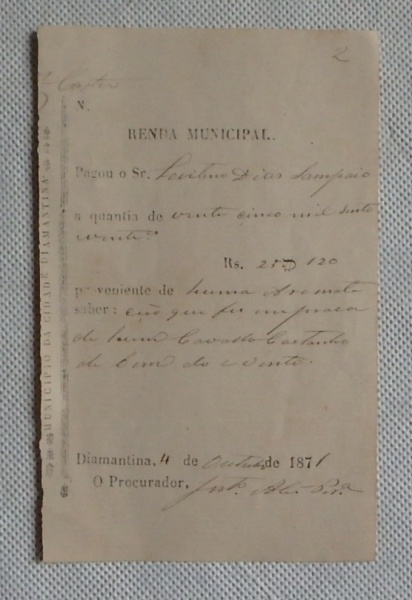 2
N.
RENDA MUNICIPAL.
Pagou o Sr. Levitino Dias Sampaio
a quantia de vente cinco mil cento
vente
Rs. 25$120
proveniente de huma
saber: que fes em praca
de hum Cavallo Castanho
de do evento.
Diamantina, 4 de Outubro de 1871
O Procurador,
MUNICIPIO DA CIDADE DIAMANTINA